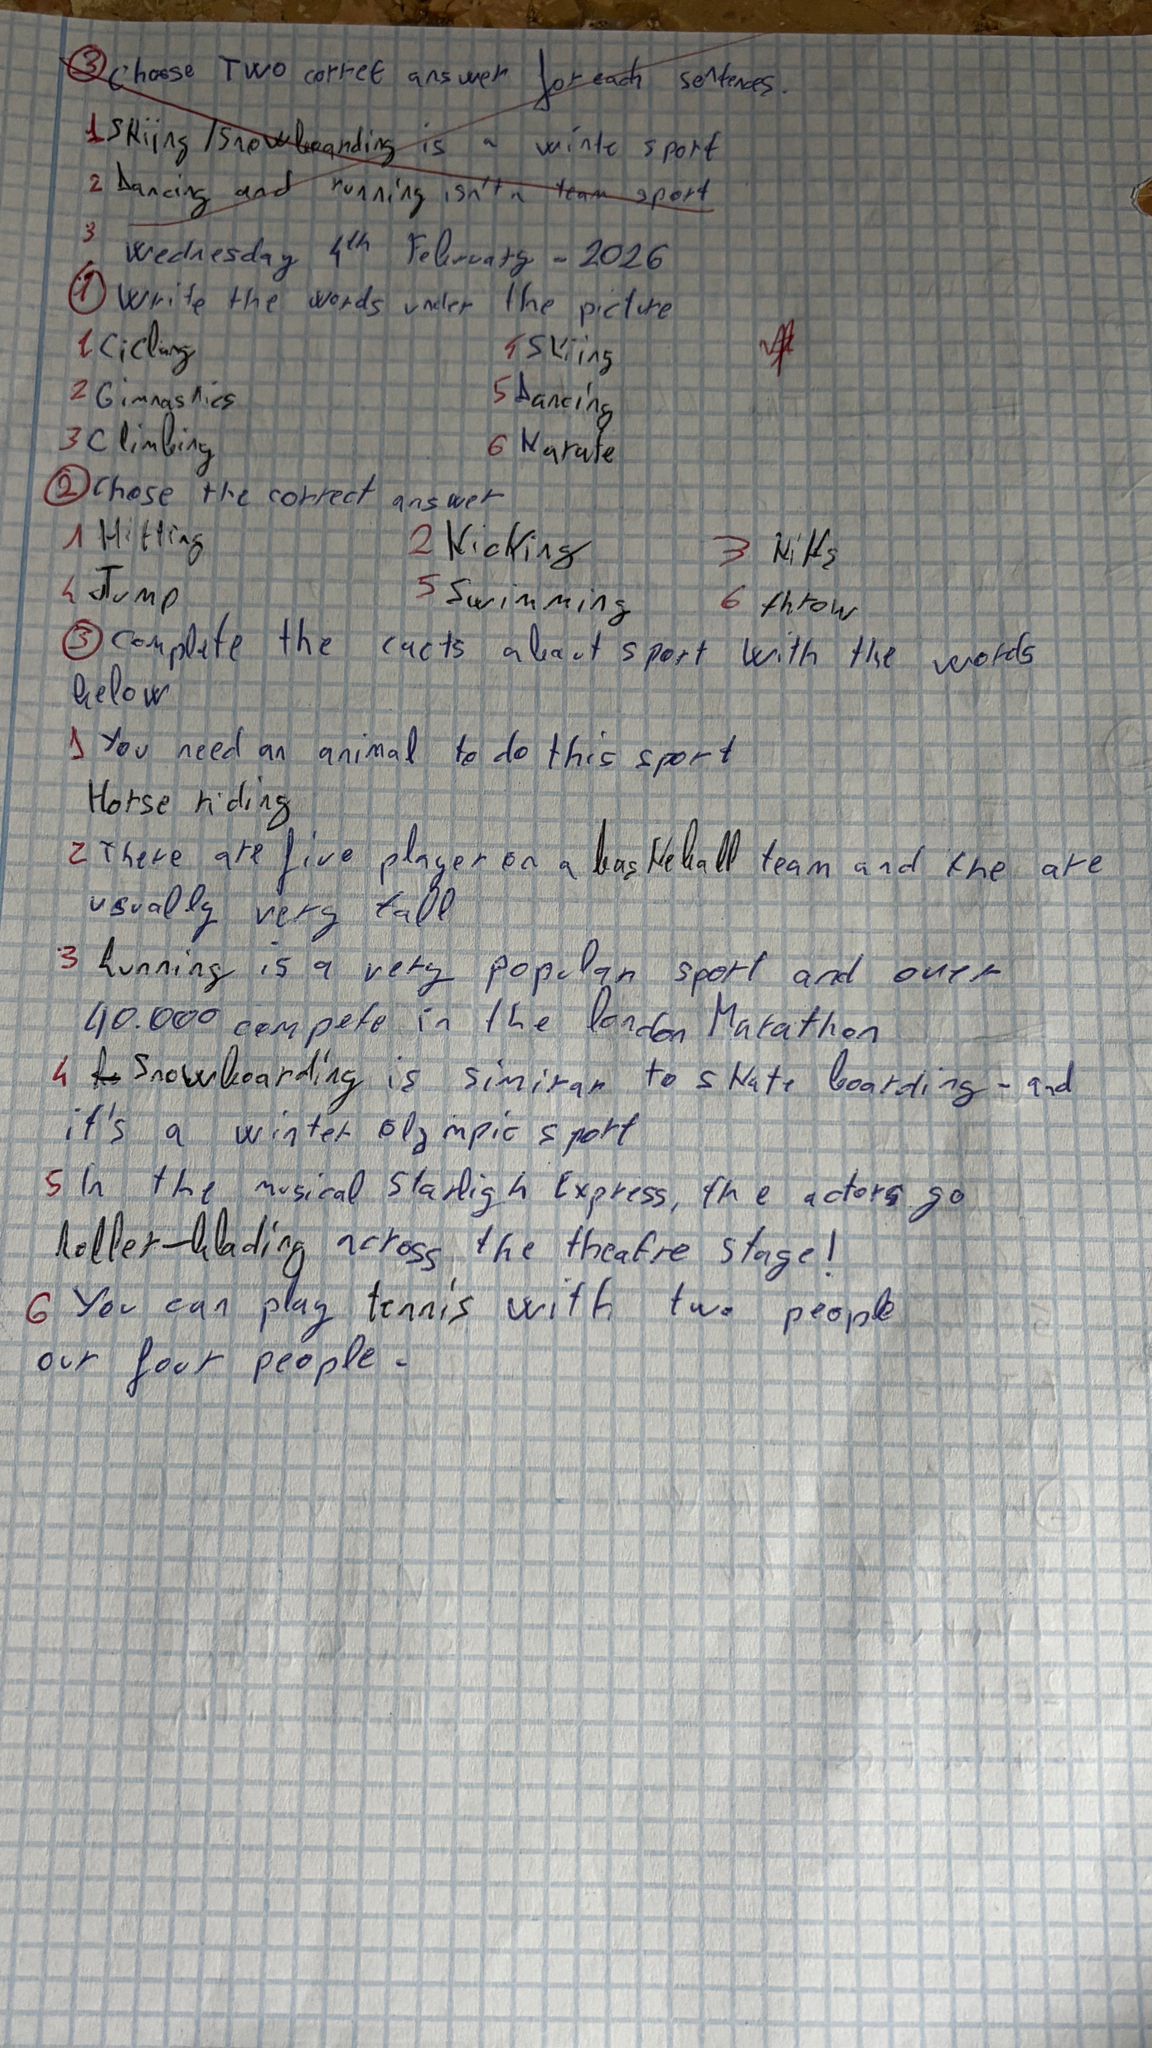 ③ Choose Two corret answer for each sentences.
1 Skiing / Snowboarding is a winte sport
2 Dancing and running isn't a team sport
3
Wednesday 4th February - 2026
① Write the words under the picture
1 Cicling 4 Skiing
2 Gimnastics 5 Dancing
3 Climbing 6 Karate
② Chose the correct answer
1 Hitting 2 Kicking 3 Hits
4 Jump 5 Swimming 6 throw
③ complete the cacts about sport with the words
below
1 You need an animal to do this sport
Horse riding
2 There are five player on a basketball team and the are
usually very tall
3 Running is a very popular sport and over
40.000 compete in the london Marathon
4 Snowboarding is simirar to skate boarding - and
it's a winter olympic sport
5 In the musical Starligh Express, the actors go
Roller-blading across the theatre stage!
6 You can play tennis with two people
our four people -